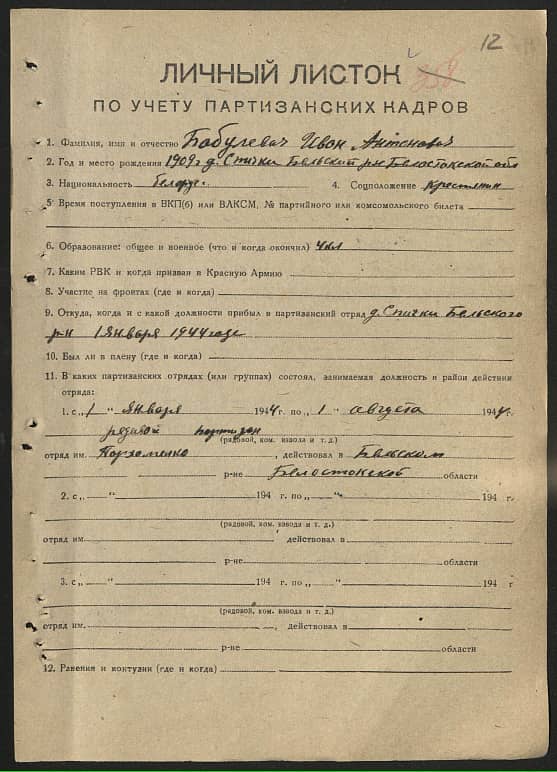 12
358
ЛИЧНЫЙ ЛИСТОК
ПО УЧЕТУ ПАРТИЗАНСКИХ КАДРОВ
1. Фамилия, имя и отчество Бабулевич Иван Антонович
2. Год и место рождения 1909 г д. Спички Бельский р-н Белостокской обл
3. Национальность белорус. 4. Соцположение Крестьянин
5. Время поступления в ВКП(б) или ВЛКСМ, № партийного или комсомольского билета
6. Образование: общее и военное (что и когда окончил) 4 кл
7. Каким РВК и когда призван в Красную Армию
8. Участие на фронтах (где и когда)
9. Откуда, когда и с какой должности прибыл в партизанский отряд д. Спички Бельского
р-н 1 Января 1944 годе
10. Был ли в плену (где и когда)
11. В каких партизанских отрядах (или группах) состоял, занимаемая должность и район действия
отряда:
1. с „1" января 1944 г. по „1" августа 1944 г.
рядовой партизан
(рядовой, ком. взвода и т. д.)
отряд им. Пархоменко, действовал в Бельском
р-не Белостокской области
2. с „ " 194 г. по „ " 194 г.
(рядовой, ком. взвода и т. д.)
отряд им. действовал в
р-не области
3. с „ " 194 г. по „ " 194 г
(рядовой, ком. взвода и т. д.)
отряд им. , действовал в
р-не области
12. Ранения и контузии (где и когда)